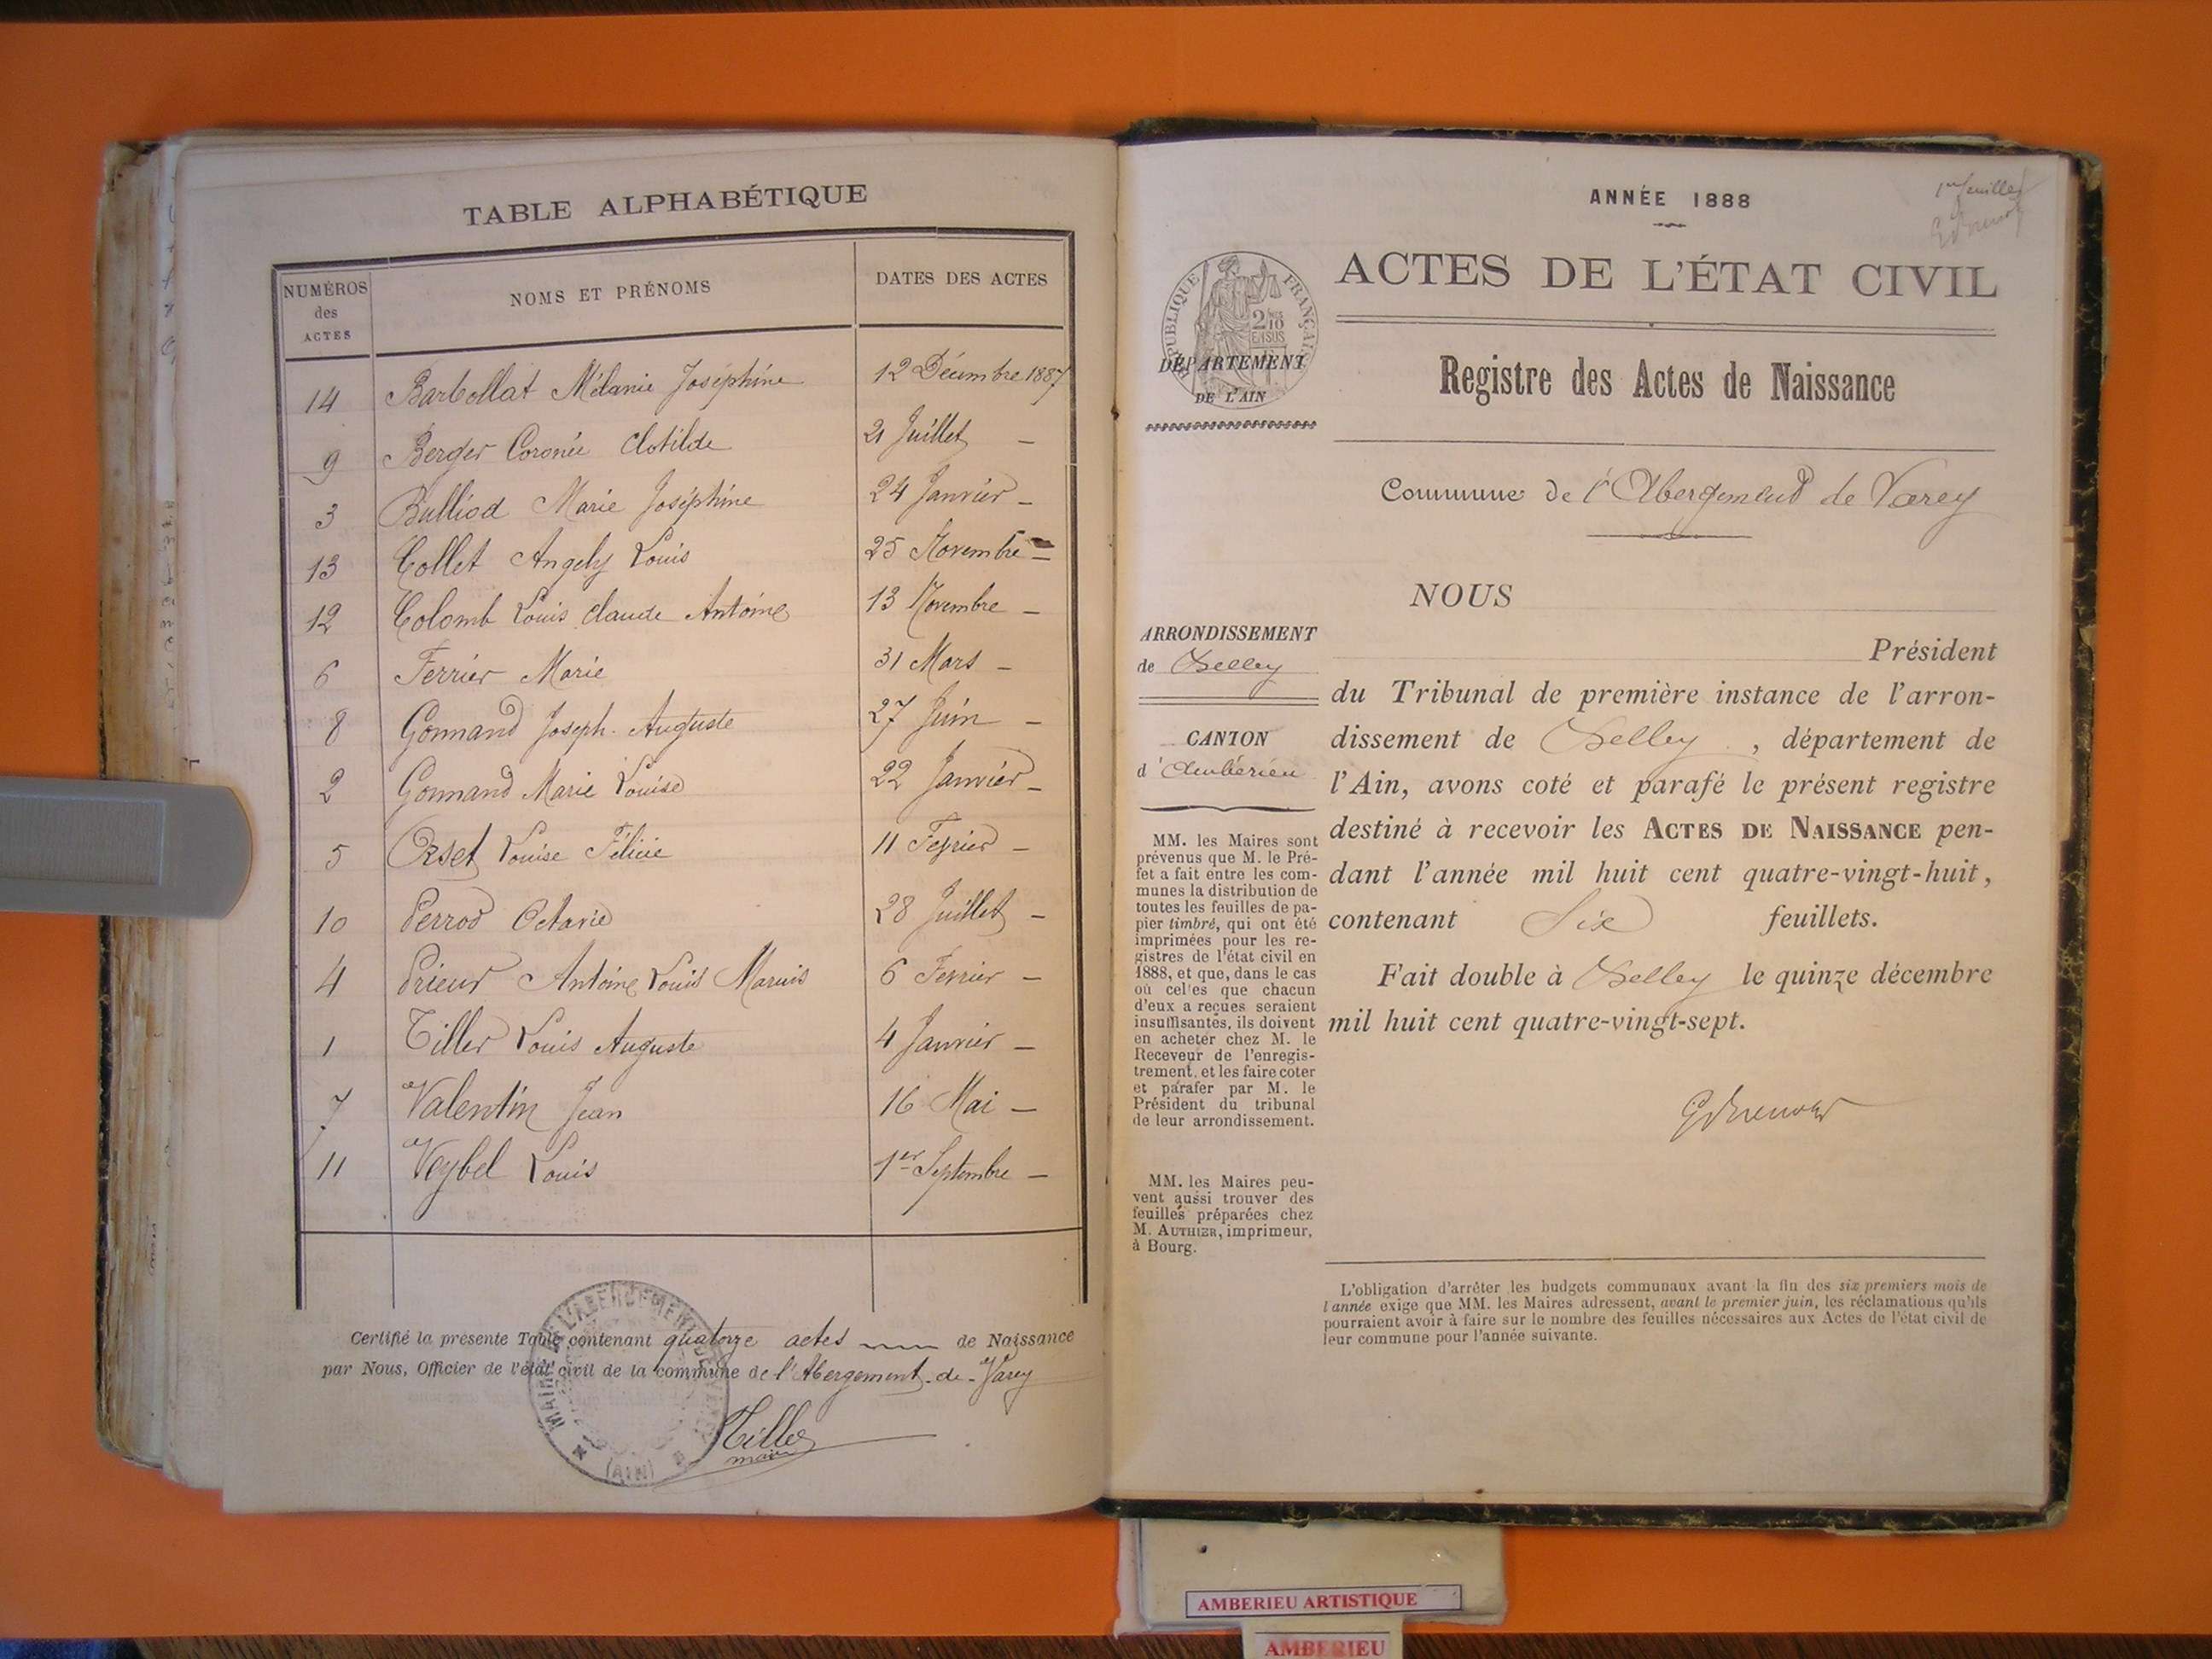 TABLE ALPHABÉTIQUE
NUMÉROS des ACTES NOMS ET PRÉNOMS DATES DES ACTES
14 Barbollat Mélanie Joséphine 12 Décembre 1887
9 Berger Coronée Clotilde 21 Juillet —
3 Bulliod Marie Joséphine 24 Janvier —
13 Collet Angely Louis 25 Novembre —
12 Colomb Louis Claude Antoine 13 Novembre —
6 Ferrier Marie 31 Mars —
8 Gonnand Joseph Auguste 27 Juin —
2 Gonnand Marie Louise 22 Janvier —
5 Orset Louise Félicie 11 Fevrier —
10 Perrod Octavie 28 Juillet —
4 Prieur Antoine Louis Marius 6 Fevrier —
1 Tiller Louis Auguste 4 Janvier —
7 Valentin Jean 16 Mai —
11 Veybel Louis 1er Septembre —
Certifié la présente Table contenant quatorze actes de Naissance
par Nous, Officier de l'état civil de la commune de l'Abergement-de-Varey
Tiller
maire
(AIN)
1er feuillet
ANNÉE 1888
ACTES DE L'ÉTAT CIVIL
RÉPUBLIQUE FRANÇAISE
2/10 EN SUS
DÉPARTEMENT
DE L'AIN
Registre des Actes de Naissance
Commune de l'Abergement de Varey
ARRONDISSEMENT
de Belley
CANTON
d'Ambérieu
MM. les Maires sont
prévenus que M. le Pré-
fet a fait entre les com-
munes la distribution de
toutes les feuilles de pa-
pier timbré, qui ont été
imprimées pour les re-
gistres de l'état civil en
1888, et que, dans le cas
où celles que chacun
d'eux a reçues seraient
insuffisantes, ils doivent
en acheter chez M. le
Receveur de l'enregis-
trement, et les faire coter
et parafer par M. le
Président du tribunal
de leur arrondissement.
MM. les Maires peu-
vent aussi trouver des
feuilles préparées chez
M. AUTHIER, imprimeur,
à Bourg.
NOUS
Président
du Tribunal de première instance de l'arron-
dissement de Belley, département de
l'Ain, avons coté et parafé le présent registre
destiné à recevoir les ACTES DE NAISSANCE pen-
dant l'année mil huit cent quatre-vingt-huit,
contenant Six feuillets.
Fait double à Belley le quinze décembre
mil huit cent quatre-vingt-sept.
L'obligation d'arrêter les budgets communaux avant la fin des six premiers mois de
l'année exige que MM. les Maires adressent, avant le premier juin, les réclamations qu'ils
pourraient avoir à faire sur le nombre des feuilles nécessaires aux Actes de l'état civil de
leur commune pour l'année suivante.
AMBERIEU ARTISTIQUE
AMBERIEU